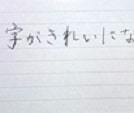 字がきれいにな